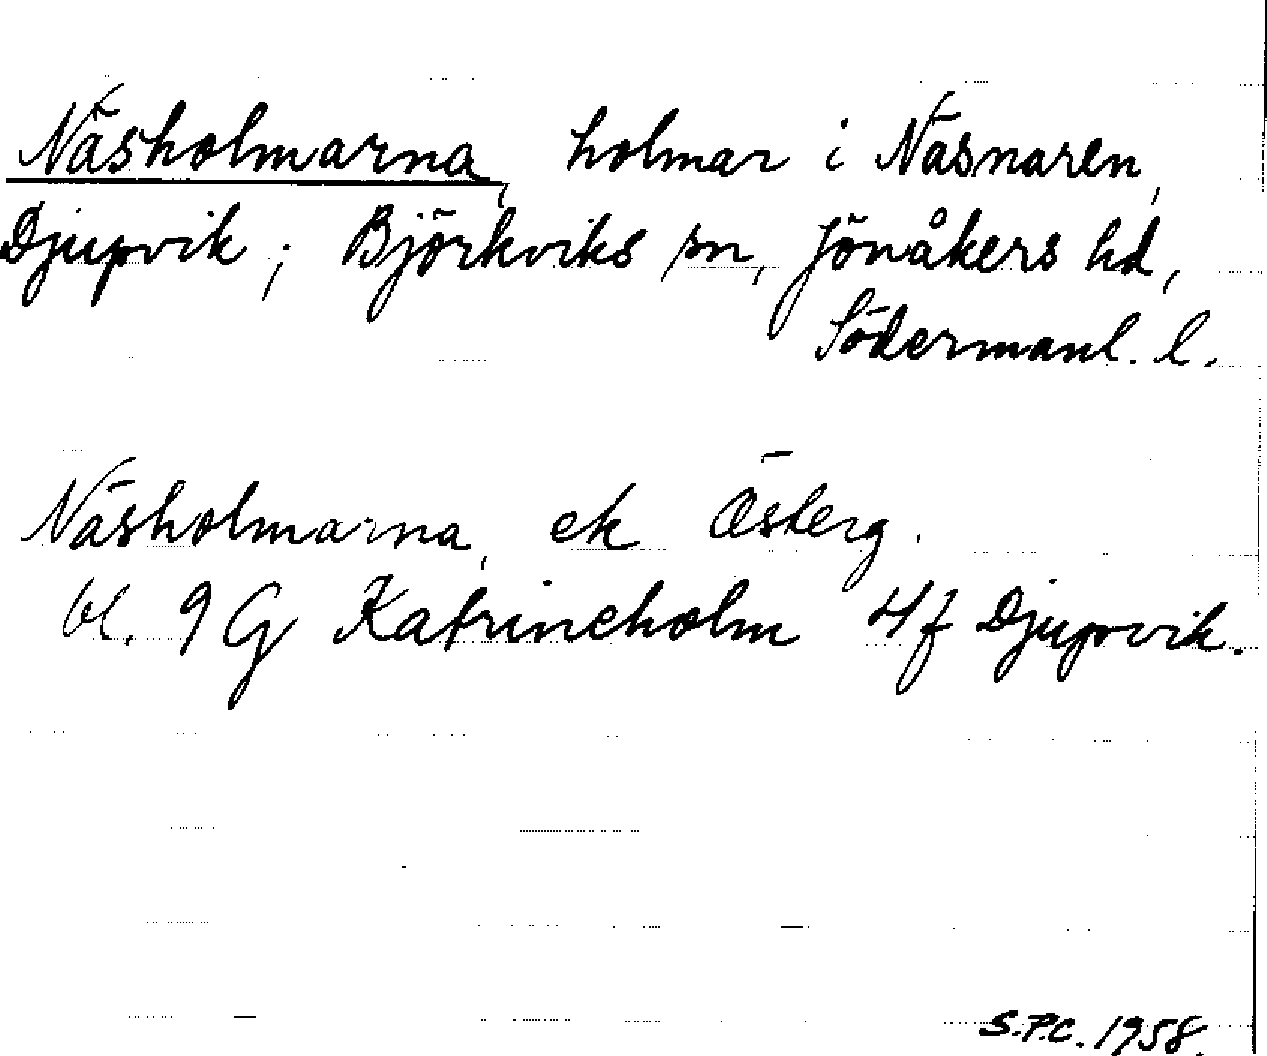 Näsholmarna, holmar i Näsnaren,
Djupvik; Björkviks sn, Jönåkers hd,
Södermanl. l.
Näsholmarna, ek Österg.
bl. 9 G Katrineholm 4f Djupvik.
S.P.C. 1958.